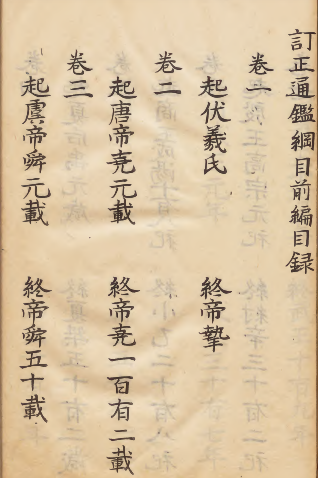 訂正通鑑綱目前編目録
卷一
起伏羲氏 終帝摯
卷二
起唐帝堯元載 終帝堯一百有二載
卷三
起虞帝舜元載 終帝舜五十載